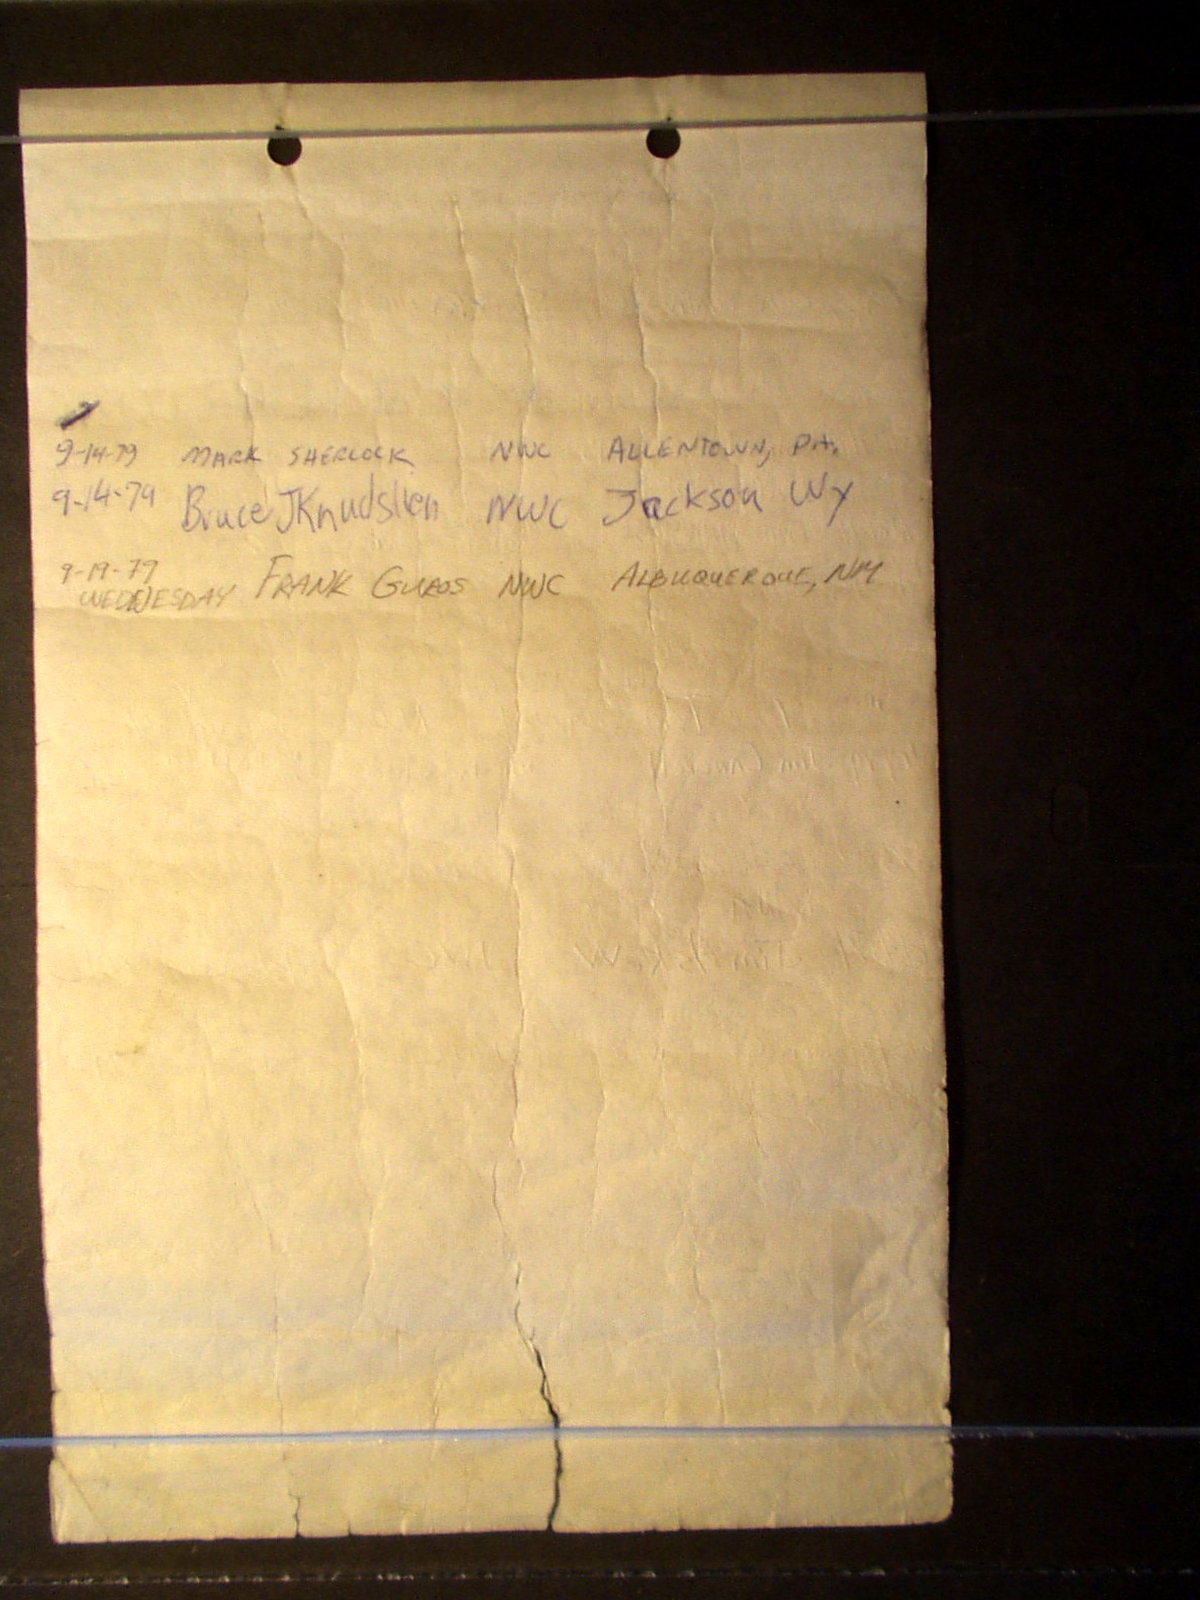 9-14-79 MARK SHERLOCK NWC ALLENTOWN, PA.
9-14-79 Bruce J NWC Jackson Wy
9-19-79 FRANK NWC ALBUQUERQUE, NM
WEDNESDAY